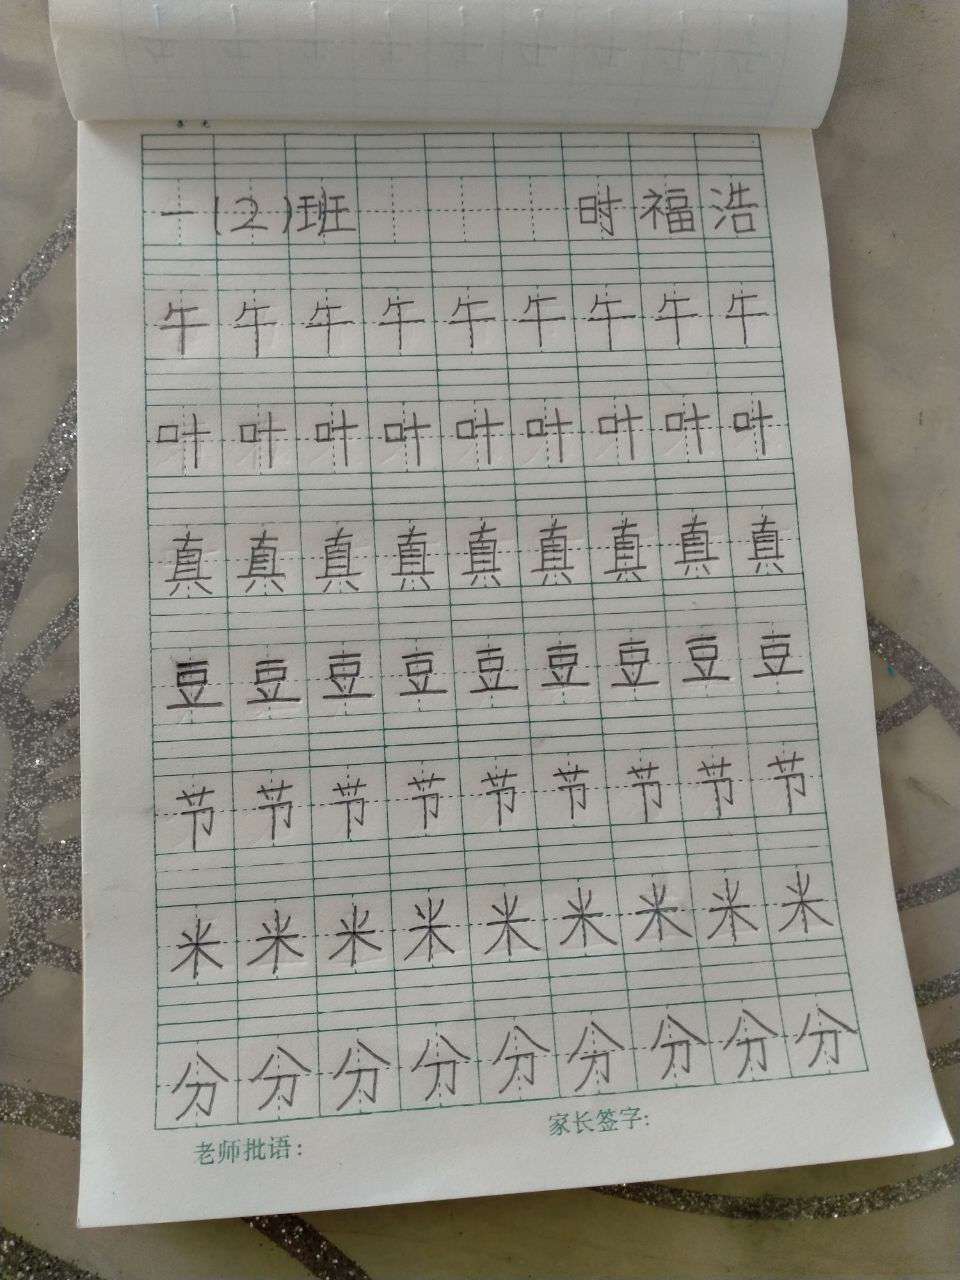 一(2)班 时福浩
午午午午午午午午午
叶叶叶叶叶叶叶叶叶
真真真真真真真真真
豆豆豆豆豆豆豆豆豆
节节节节节节节节节
米米米米米米米米米
分分分分分分分分分
老师批语: 家长签字: